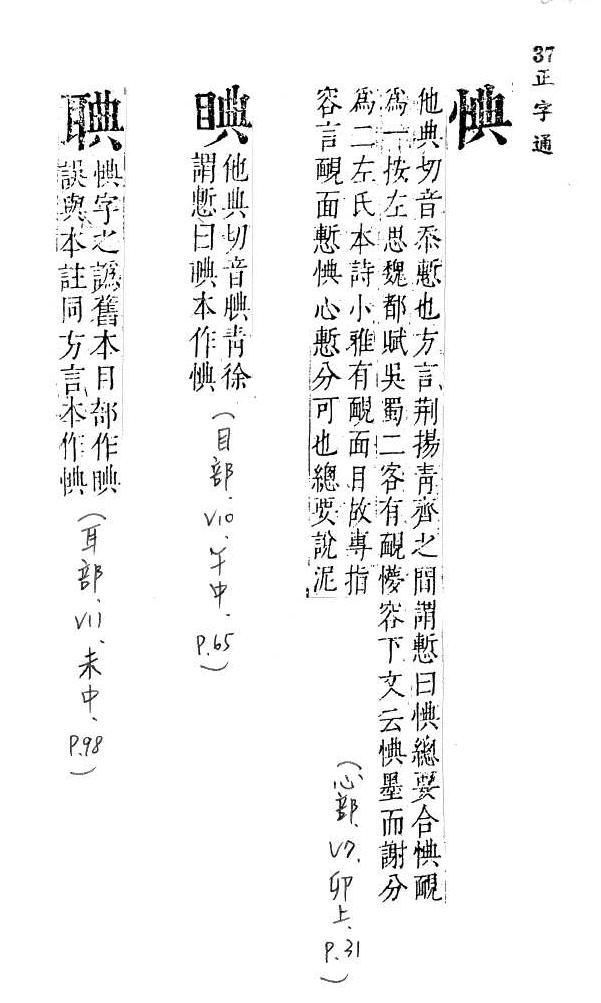 37正字通
惵
他典切音忝慙也方言荆揚青齊之間謂慙曰惵總要合惵靦
爲一按左思魏都賦吳蜀二客有靦懜容下文云惵墨而謝分
爲二左氏本詩小雅有靦面目故專指
容言靦面慙惵心慙分可也總要說泥
(心部、V7、卯上、P.31)
䁎
他典切音腆青徐
謂慙曰䁎本作惵
(目部、V10、午中、P.65)
䏽
惵字之譌舊本目部作䁎
誤與本註同方言本作惵
(耳部、V11、未中、P.98)